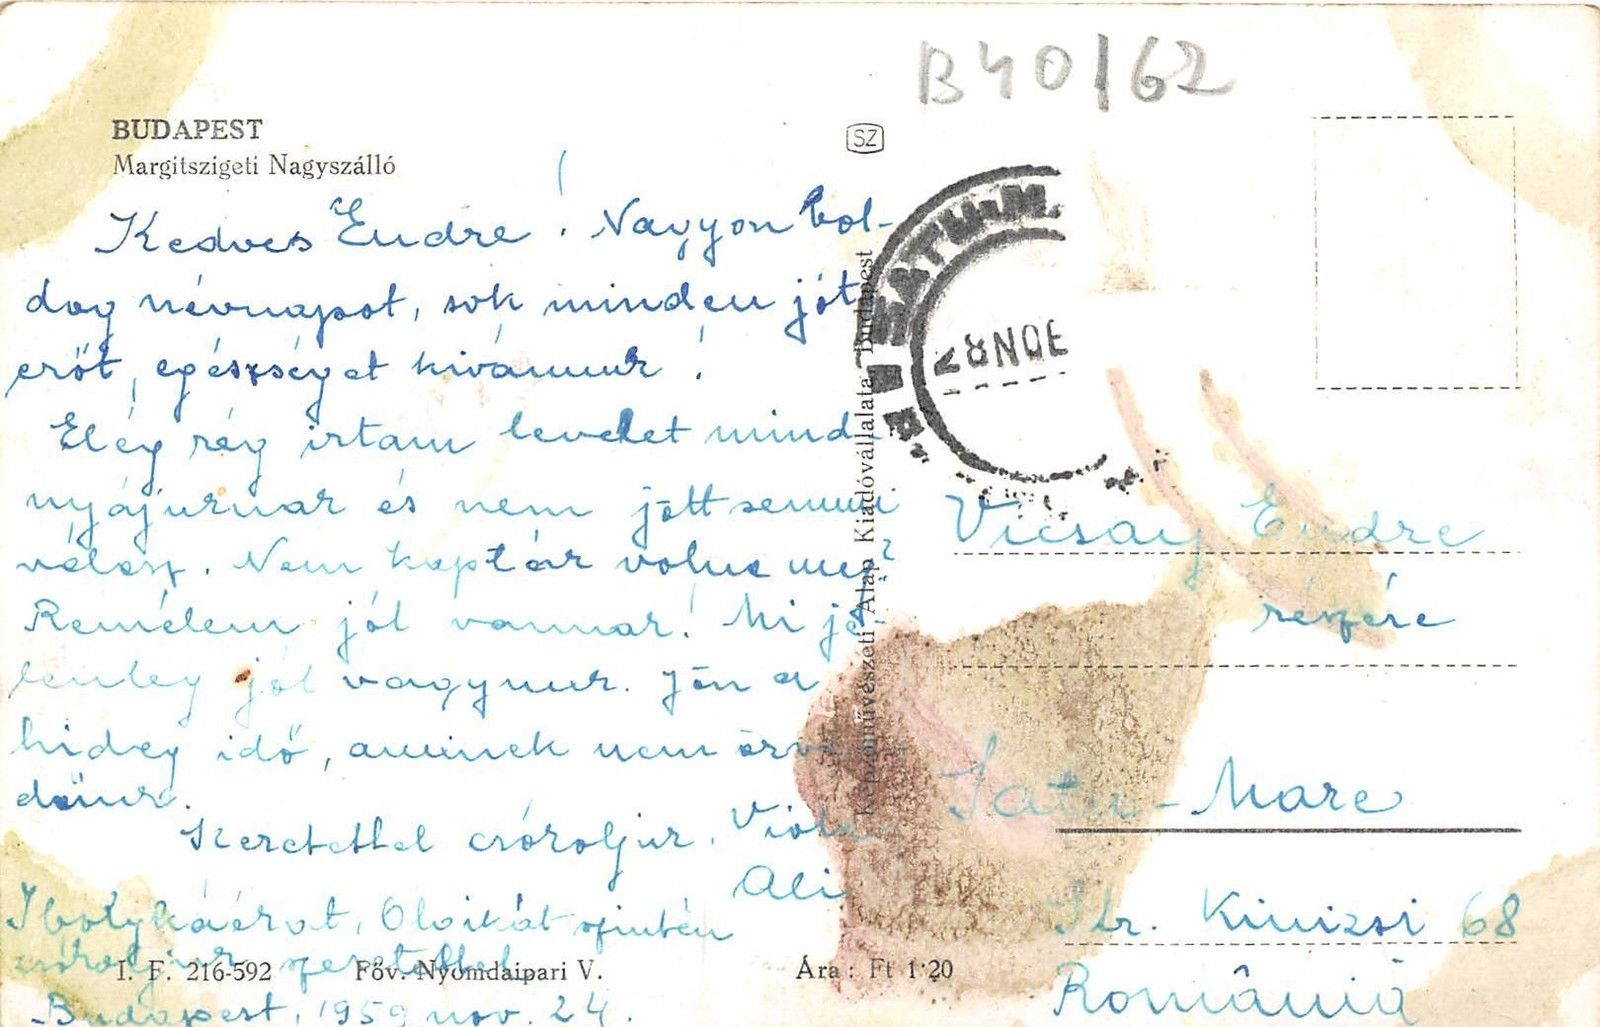 B40/62
BUDAPEST
Margitszigeti Nagyszálló
SZ
Kedves Endre! Nagyon bol-
dog névnapot, sok minden jót
erőt, egészséget kivánnunk!
Elég rég irtam levelet mind-
nyájuknak és nem jött semmi
válasz. Nem kapták volna meg?
Remélem jól vannak! Mi je-
lenleg jól vagyunk. Jön a
hideg idő, aminek nem örven-
dünk.
Szeretettel csókoljuk, Viola
Ali
Ibolykáékat, Olvikát szintén
csókoljuk szeretettel
Budapest, 1959 nov. 24.
I. F. 216-592 Főv. Nyomdaipari V. Ára: Ft 1·20
Képzőművészeti Alap Kiadóvállalata, Budapest
SATU-M
28NOE
Vicsay Endre
részére
Satu-Mare
Str. Kinizsi 68
România